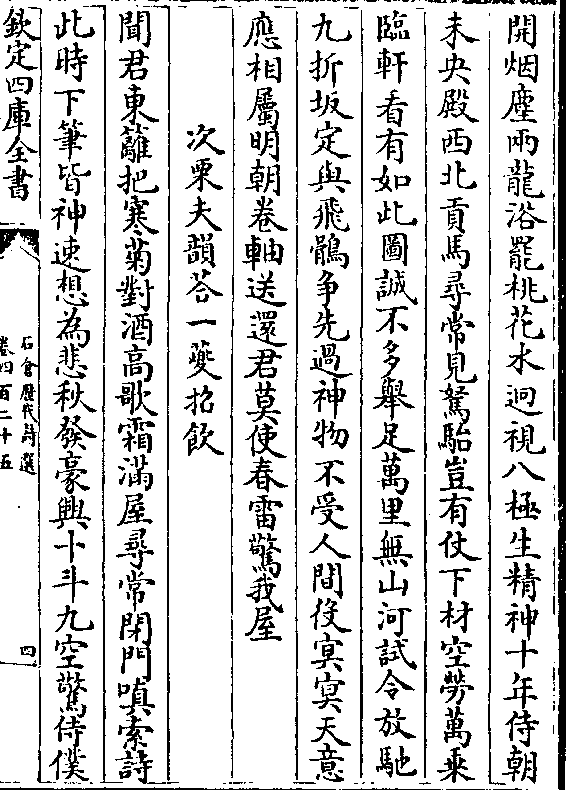 開烟塵兩龍浴罷桃花水迥視八極生精神十年侍朝
未央殿西北貢馬尋常見駑駘豈有仗下材空勞萬乘
臨軒看有如此圖誠不多舉足萬里無山河試令放馳
九折坂定與飛鶻争先過神物不受人間役冥冥天意
應相屬明朝卷軸送還君莫使春雷驚我屋
次栗夫韻荅一夔招飲
聞君東籬把寒菊對酒高歌霜滿屋尋常閉門嗔索詩
此時下筆皆神速想為悲秋發豪興十斗九空驚侍僕
欽定四庫全書
石倉歷代詩選
卷四百二十五
四